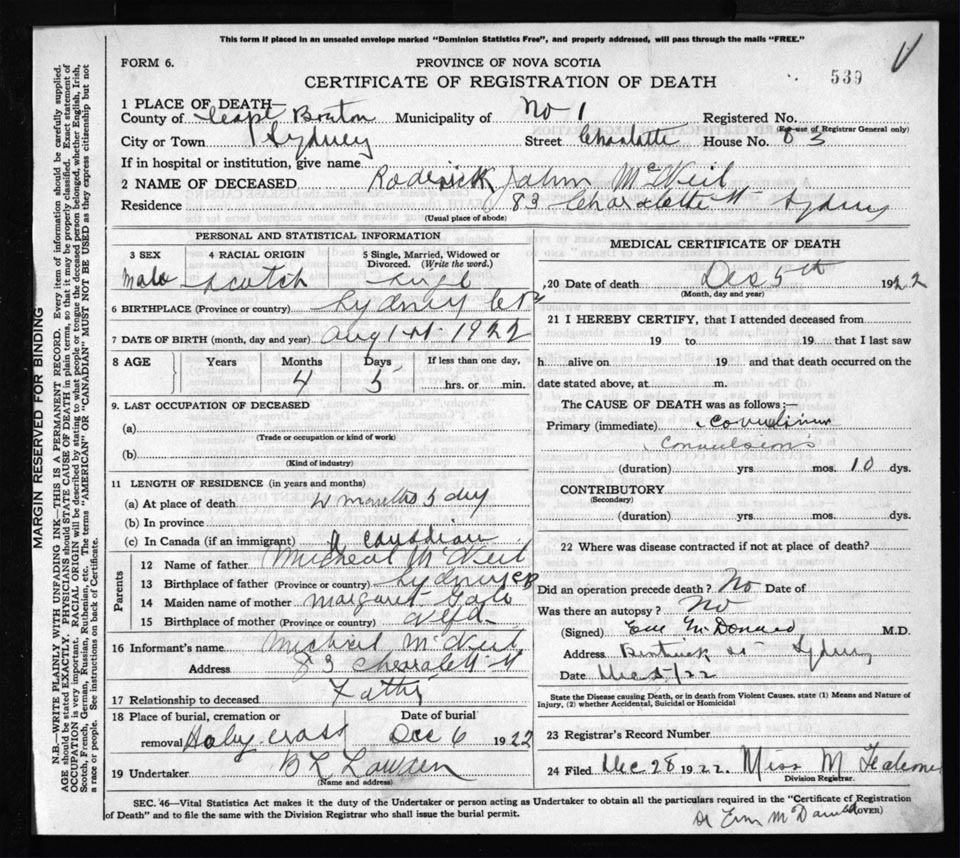 This form if placed in an unsealed envelope marked "Dominion Statistics Free", and properly addressed, will pass through the mails "FREE."
FORM 6.
PROVINCE OF NOVA SCOTIA
CERTIFICATE OF REGISTRATION OF DEATH
539
1 PLACE OF DEATH—
County of Cape Breton Municipality of No 1 Registered No.
(For use of Registrar General only)
City or Town Sydney Street Charlotte House No. 83
If in hospital or institution, give name
2 NAME OF DECEASED Roderick John McNeil
Residence 83 Charlotte St Sydney
(Usual place of abode)
PERSONAL AND STATISTICAL INFORMATION
3 SEX 4 RACIAL ORIGIN 5 Single, Married, Widowed or Divorced. (Write the word.)
Male Scotch
6 BIRTHPLACE (Province or country) Sydney
7 DATE OF BIRTH (month, day and year) Aug 1st 1922
8 AGE Years Months Days If less than one day,
4 5 hrs. or min.
9. LAST OCCUPATION OF DECEASED
(a)
(Trade or occupation or kind of work)
(b)
(Kind of industry)
11 LENGTH OF RESIDENCE (in years and months)
(a) At place of death 4 months 5 day
(b) In province
(c) In Canada (if an immigrant) a canadian
Parents
12 Name of father Micheal McNeil
13 Birthplace of father (Province or country) Sydney CB
14 Maiden name of mother Margaret
15 Birthplace of mother (Province or country) Nfld
16 Informant's name Michael McNeil
Address 83 Charalett St
17 Relationship to deceased Father
18 Place of burial, cremation or removal Date of burial
Holy cross Dec 6 1922
19 Undertaker
(Name and address)
MEDICAL CERTIFICATE OF DEATH
20 Date of death Dec 5th 1922
(Month, day and year)
21 I HEREBY CERTIFY, that I attended deceased from
19 to 19 that I last saw
h alive on 19 and that death occurred on the
date stated above, at m.
The CAUSE OF DEATH was as follows:—
Primary (immediate)
Convulsions
(duration) yrs. mos. 10 dys.
CONTRIBUTORY
(Secondary)
(duration) yrs. mos. dys.
22 Where was disease contracted if not at place of death?
Did an operation precede death? No Date of
Was there an autopsy? No
(Signed) McDonald M.D.
Address St Sydney
Date Dec 5/22
State the Disease causing Death, or in death from Violent Causes, state (1) Means and Nature of
Injury, (2) whether Accidental, Suicidal or Homicidal
23 Registrar's Record Number
24 Filed Dec 28 1922 Miss M
Division Registrar.
SEC. 46—Vital Statistics Act makes it the duty of the Undertaker or person acting as Undertaker to obtain all the particulars required in the "Certificate of Registration
of Death" and to file the same with the Division Registrar who shall issue the burial permit.
(OVER)
Dr McDonald
MARGIN RESERVED FOR BINDING
N.B.—WRITE PLAINLY WITH UNFADING INK—THIS IS A PERMANENT RECORD. Every item of information should be carefully supplied.
AGE should be stated EXACTLY. PHYSICIANS should STATE CAUSE OF DEATH in plain terms, so that it may be properly classified. Exact statement of
OCCUPATION is very important. RACIAL ORIGIN will be described by stating to what people or tongue the deceased person belonged, whether English, Irish,
Scotch, French, German, Russian, Ruthenian, etc. The terms "AMERICAN" OR "CANADIAN" MUST NOT BE USED as they express citizenship but not
a race or people. See instructions on back of Certificate.